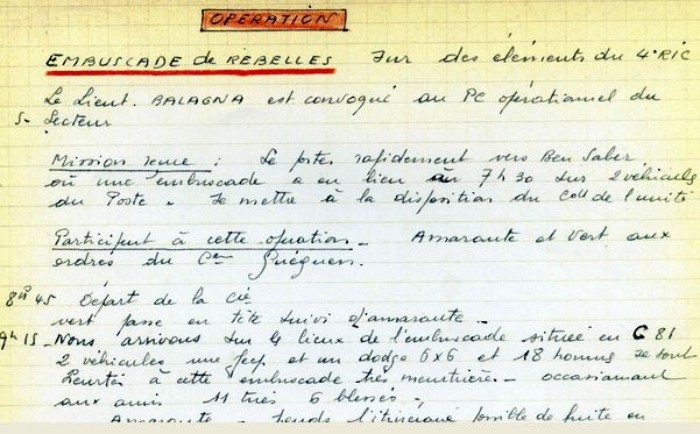 OPERATION
EMBUSCADE de REBELLES Sur des éléments du 4° RIC
Le Lieut. BALAGNA est convoqué au PC opérationnel du
S- Secteur
Mission reçue : Se porter rapidement vers Ben Saber
où une embuscade a eu lieu à 7h30 sur 2 véhicules
du Poste - Se mettre à la disposition du Cdt de l'unité
Participent à cette opération - Amarante et Vert aux
ordres du Cne Guéguen.
8H45 Départ de la Cie
vert passe en tête suivi d'amarante -
9h15 - Nous arrivons sur les lieux de l'embuscade située en C 81
2 véhicules une jeep et un dodge 6x6 et 18 hommes se sont
heurtés à cette embuscade très meurtrière - occasionnant
aux amis 11 tués 6 blessés -
Amarante - l'itinéraire possible de fuite en